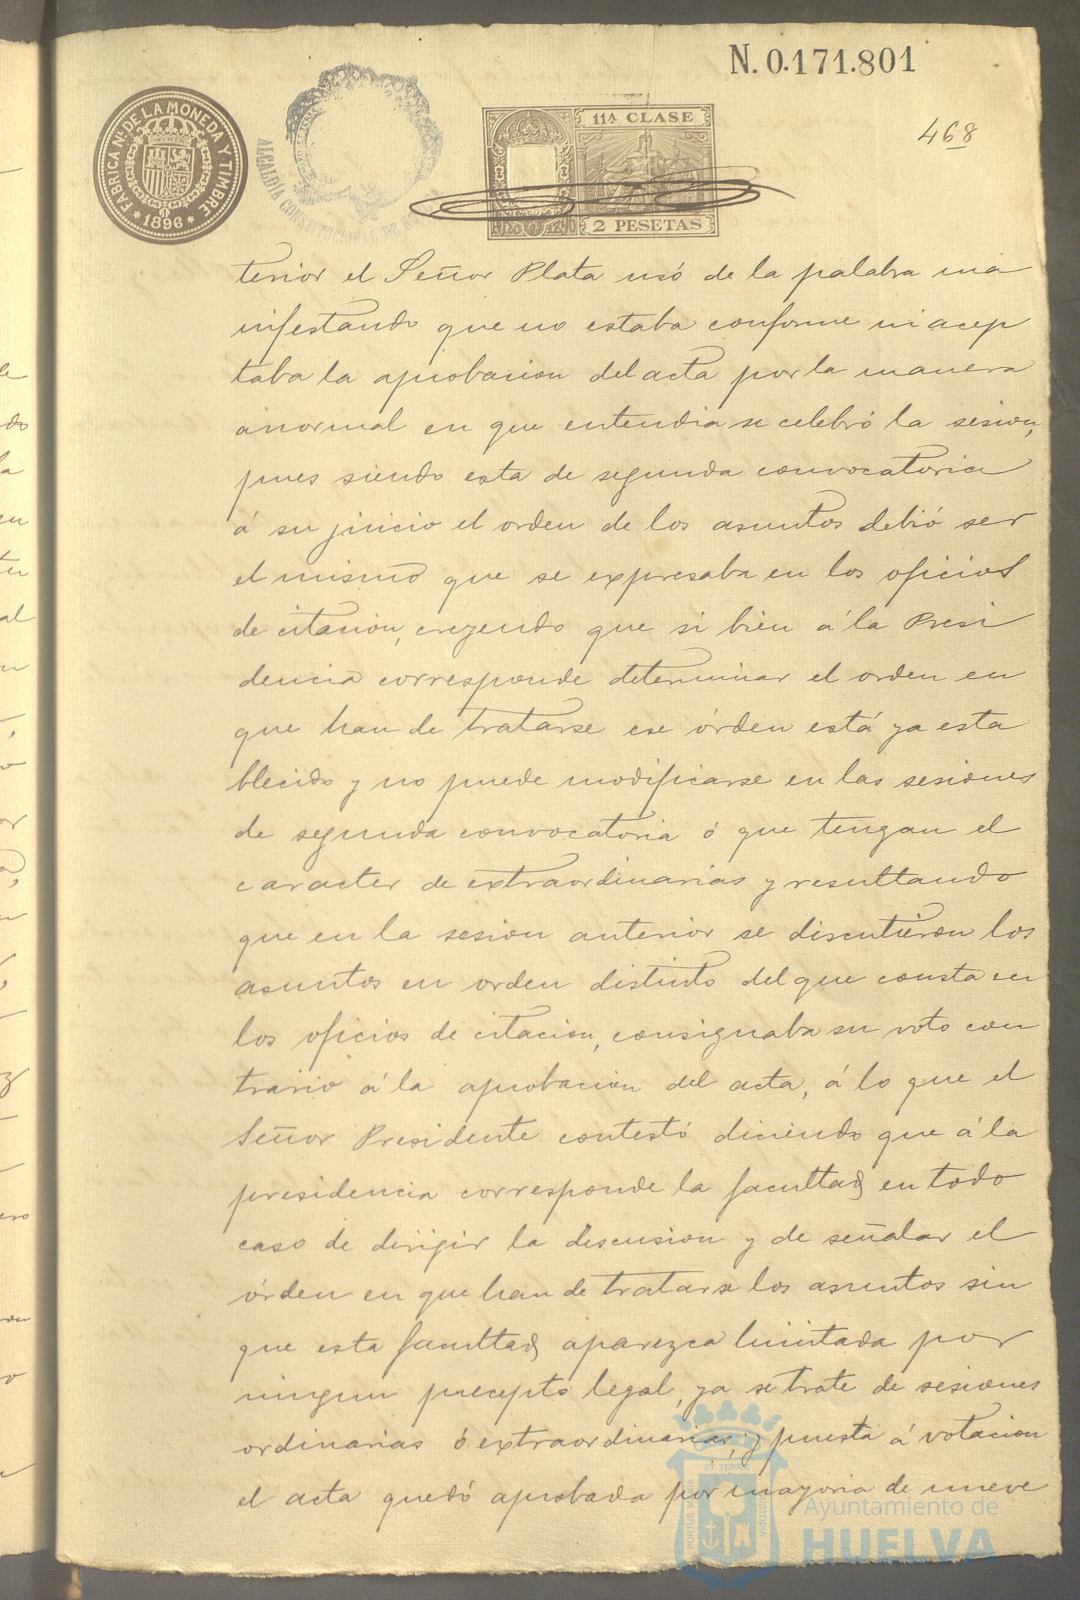 N. 0.171.801
468
FABRICA Nl. DE LA MONEDA Y TIMBRE
* 1896 *
ALCALDÍA CONSTITUCIONAL DE
11ª CLASE
2 PESETAS
terior el Señor Plata usó de la palabra ma
nifestando que no estaba conforme ni acep
taba la aprobacion del acta por la manera
anormal en que entendia se celebró la sesion,
pues siendo esta de segunda convocatoria
á su juicio el orden de los asuntos debió ser
el mismo que se expresaba en los oficios
de citacion, creyendo que si bien á la Presi
dencia corresponde determinar el orden en
que han de tratarse ese órden está ya esta
blecido y no puede modificarse en las sesiones
de segunda convocatoria ó que tengan el
caracter de extraordinarias y resultando
que en la sesion anterior se discutieron los
asuntos en orden distinto del que consta en
los oficios de citacion, consignaba su voto con
trario á la aprobacion del acta, á lo que el
Señor Presidente contestó diciendo que á la
presidencia corresponde la facultad en todo
caso de dirigir la discusion y de señalar el
órden en que han de tratarse los asuntos sin
que esta facultad aparezca limitada por
ningun precepto legal, ya se trate de sesiones
ordinarias ó extraordinarias; y puesta á votacion
el acta quedó aprobada por mayoria de nueve
Ayuntamiento de
HUELVA